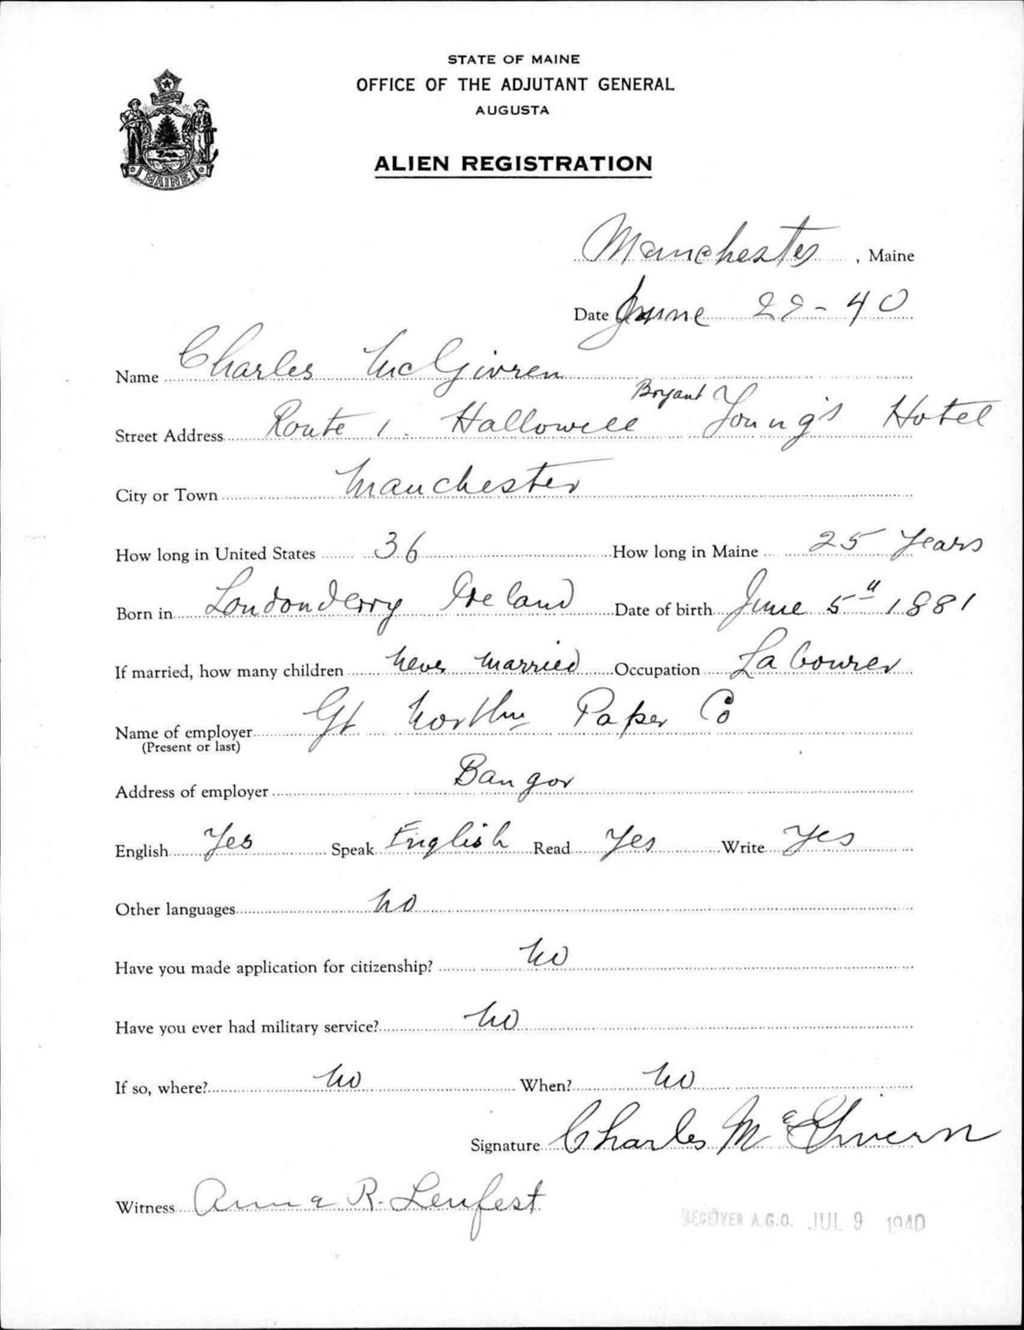 STATE OF MAINE
OFFICE OF THE ADJUTANT GENERAL
AUGUSTA
ALIEN REGISTRATION
MAINE
Manchester, Maine
Date June 29-40
Name Charles McGivren
Bryant
Street Address Route 1. Hallowell Young's Hotel
City or Town Manchester
How long in United States 36 How long in Maine 25 Years
Born in Londonderry Ireland Date of birth June 5th 1881
If married, how many children Never Married Occupation Labourer
Name of employer Gt Northn Paper Co
(Present or last)
Address of employer Bangor
English Yes Speak English Read Yes Write Yes
Other languages No
Have you made application for citizenship? No
Have you ever had military service? No
If so, where? No When? No
Signature Charles McGivern
Witness Anna R. Lenfest
RECEIVED A.G.O. JUL 9 1940